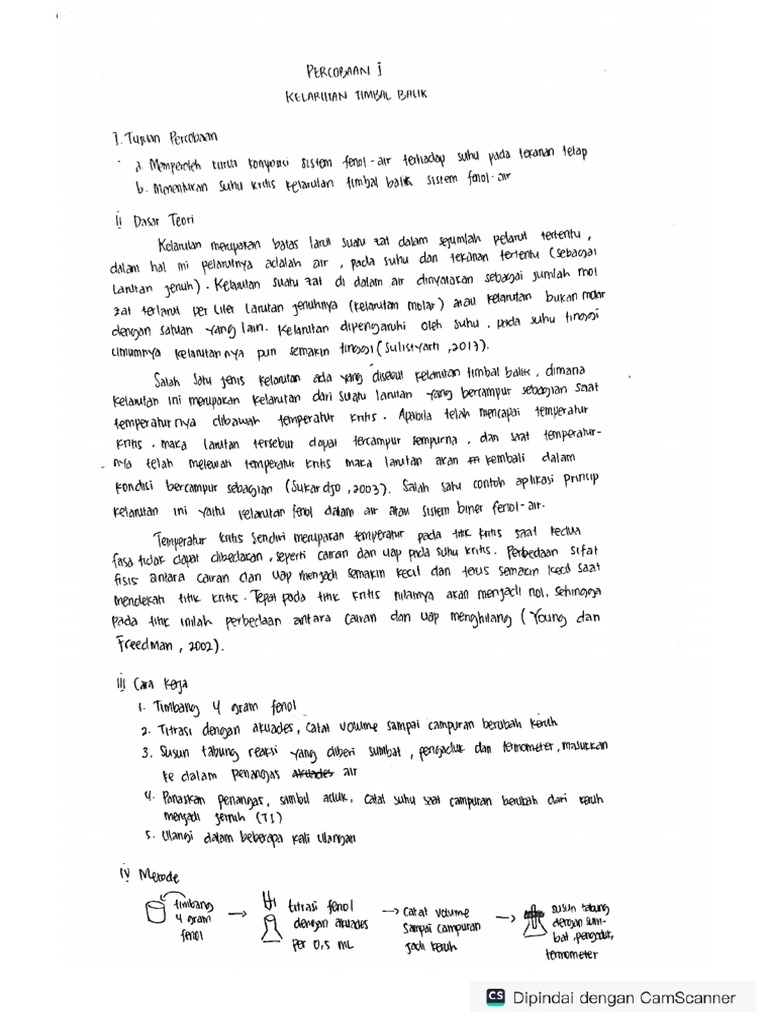 PERCOBAAN I
KELARUTAN TIMBAL BALIK
I. Tujuan Percobaan
a. Memperoleh kurva komposisi sistem fenol-air terhadap suhu pada tekanan tetap
b. Menentukan suhu kritis kelarutan timbal balik sistem fenol-air
II Dasar Teori
Kelarutan merupakan batas larut suatu zat dalam sejumlah pelarut tertentu,
dalam hal ini pelarutnya adalah air, pada suhu dan tekanan tertentu (sebagai
larutan jenuh). Kelarutan suatu zat di dalam air dinyatakan sebagai jumlah mol
zat terlarut per liter larutan jenuhnya (kelarutan molar) atau kelarutan bukan molar
dengan satuan yang lain. Kelarutan dipengaruhi oleh suhu, pada suhu tinggi
umumnya kelarutannya pun semakin tinggi (Sulistyarti, 2017).
Salah satu jenis kelarutan ada yang disebut kelarutan timbal balik, dimana
kelarutan ini merupakan kelarutan dari suatu larutan yang bercampur sebagian saat
temperaturnya dibawah temperatur kritis. Apabila telah mencapai temperatur
kritis, maka larutan tersebut dapat tercampur sempurna, dan saat temperatur-
nya telah melewati temperatur kritis maka larutan akan kembali dalam
kondisi bercampur sebagian (Sukardjo, 2003). Salah satu contoh aplikasi prinsip
kelarutan ini yaitu kelarutan fenol dalam air atau sistem biner fenol-air.
Temperatur kritis sendiri merupakan temperatur pada titik kritis saat kedua
fasa tidak dapat dibedakan, seperti cairan dan uap pada suhu kritis. Perbedaan sifat
fisis antara cairan dan uap menjadi semakin kecil dan terus semakin kecil saat
mendekati titik kritis. Tepat pada titik kritis nilainya akan menjadi nol, sehingga
pada titik inilah perbedaan antara cairan dan uap menghilang (Young dan
Freedman, 2002).
III Cara Kerja
1. Timbang 4 gram fenol
2. Titrasi dengan akuades, catat volume sampai campuran berubah keruh
3. Susun tabung reaksi yang diberi sumbat, pengaduk dan termometer, masukkan
ke dalam penangas akuades air
4. Panaskan penangas, sambil aduk, catat suhu saat campuran berubah dari keruh
menjadi jernih (T1)
5. Ulangi dalam beberapa kali ulangan
IV Metode
timbang
4 gram
fenol
titrasi fenol
dengan akuades
per 0,5 mL
catat volume
sampai campuran
jadi keruh
susun tabung
dengan sum-
bat, pengaduk,
termometer
CS Dipindai dengan CamScanner